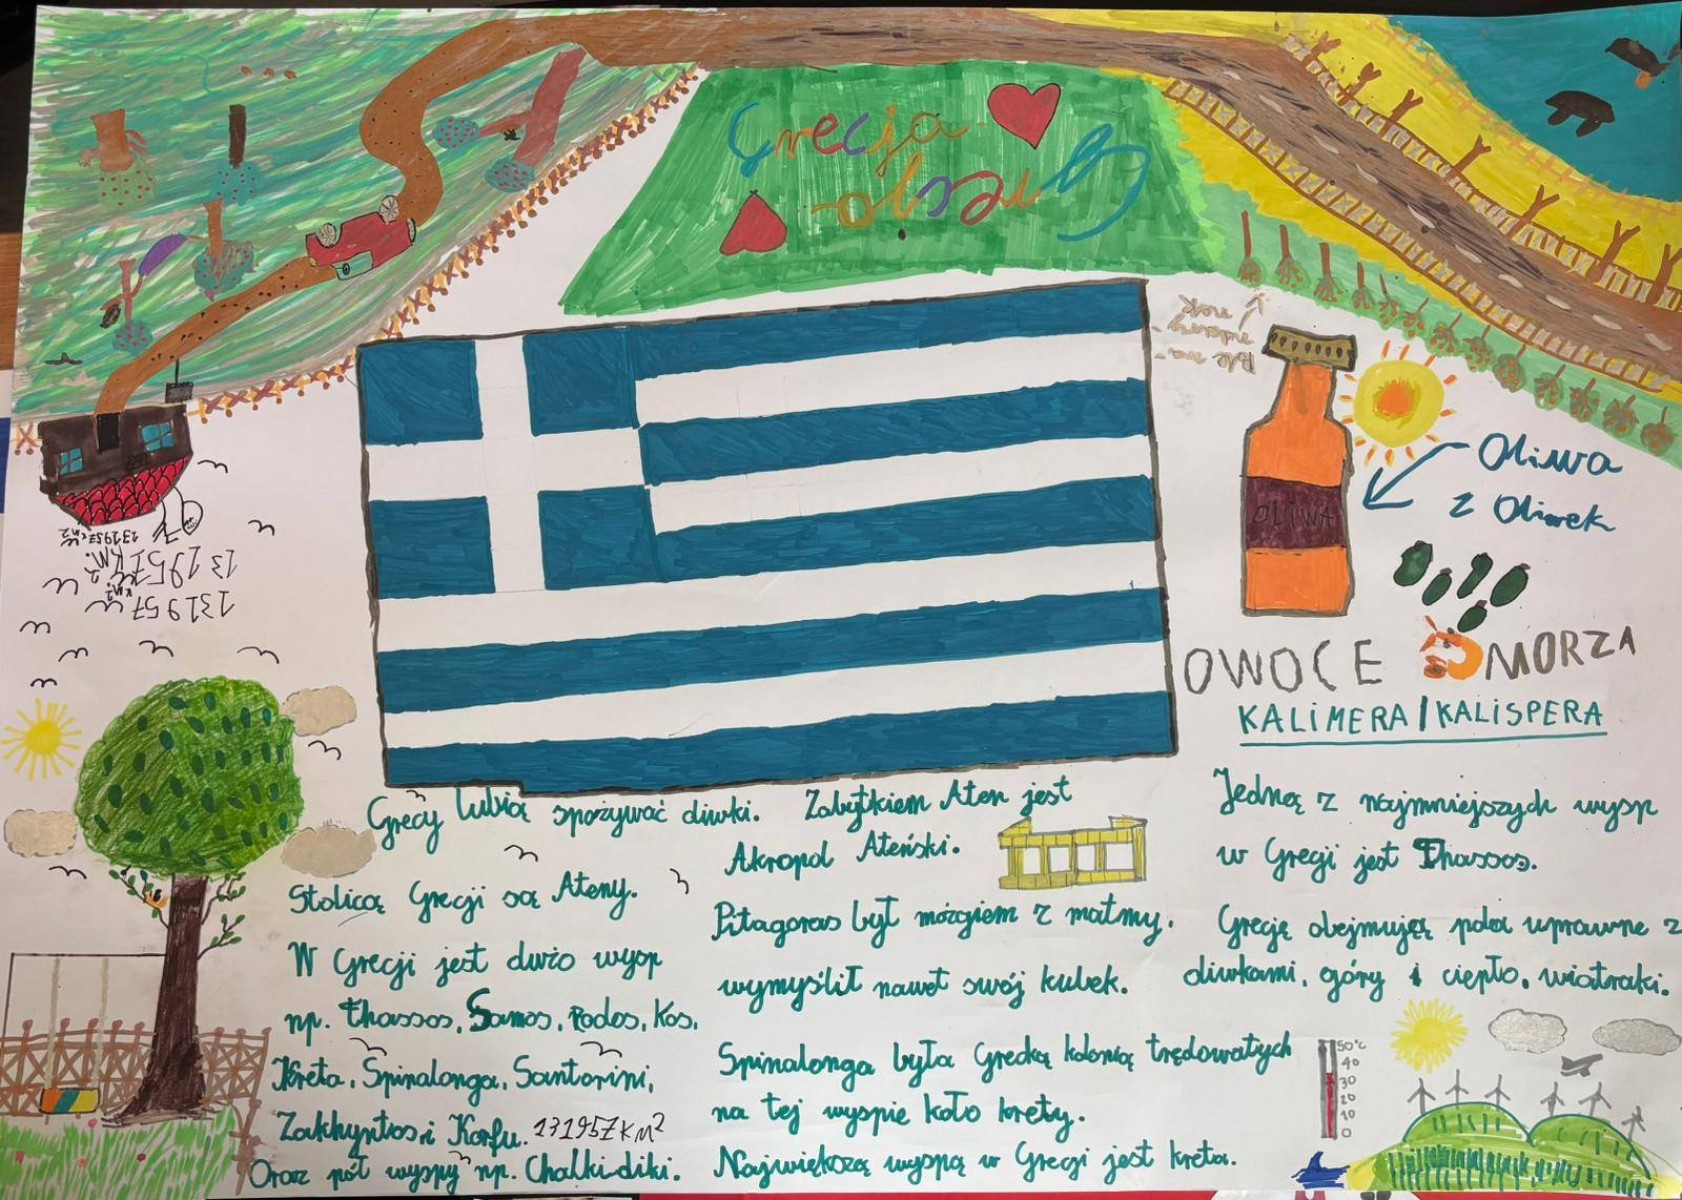 Grecja
Grecja
Pole na-
OLIWA
Oliwa
z Oliwek
OWOCE MORZA
KALIMERA/KALISPERA
131957 km²
131957 KM²
131957 km²
Grecy lubią spożywać oliwki.
Stolicą Grecji są Ateny.
W Grecji jest dużo wysp
np. Thassos, Samos, Rodos, Kos,
Kreta, Spinalonga, Santorini,
Zakhyntos i Korfu. 131957 KM²
Oraz pół wyspy np. Chalki diki.
Zabytkiem Aten jest
Akropol Ateński.
Pitagoras był mózgiem z matmy.
wymyślił nawet swój kubek.
Spinalonga była Grecką kolonią trędowatych
na tej wyspie koło krety.
Największą wyspą w Grecji jest kreta.
Jedną z najmniejszych wysp
w Grecji jest Thassos.
Grecję obejmują pola uprawne z
oliwkami, góry i ciepło, wiatraki.
50°C
40
30
20
10
0